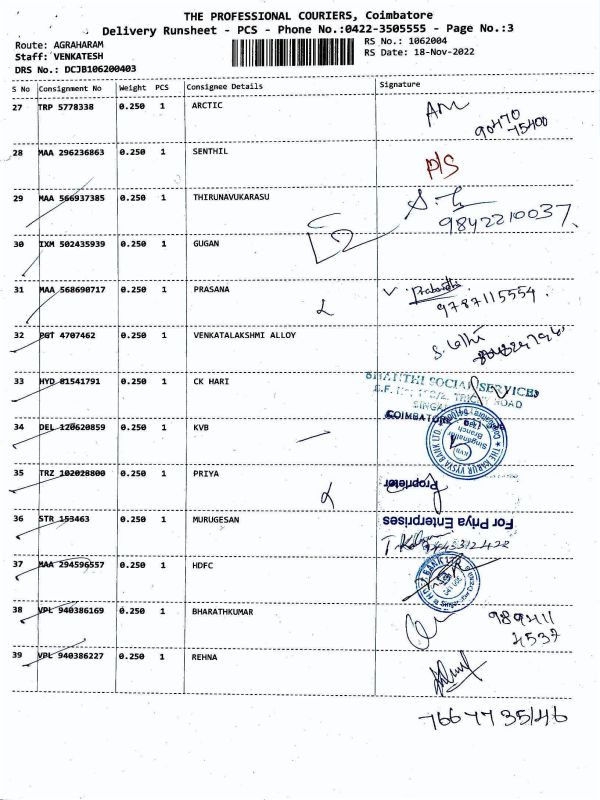 THE PROFESSIONAL COURIERS, Coimbatore
Delivery Runsheet - PCS - Phone No.:0422-3505555 - Page No.:3
Route: AGRAHARAM
RS No.: 1062004
Staff: VENKATESH
RS Date: 18-Nov-2022
DRS No.: DCJB106200403
S No Consignment No Weight PCS Consignee Details Signature
27 TRP 5778338 0.250 1 ARCTIC
90470
75400
28 MAA 296236863 0.250 1 SENTHIL P/S
29 MAA 566937385 0.250 1 THIRUNAVUKARASU
9842210037
30 IXM 502435939 0.250 1 GUGAN
31 MAA 568690717 0.250 1 PRASANA
9787115554
32 PGT 4707462 0.250 1 VENKATALAKSHMI ALLOY
33 HYD 81541791 0.250 1 CK HARI
SOCIAL SERVICES
ROAD
COIMBATORE
34 DEL 120620859 0.250 1 KVB
THE KARUR VYSYA BANK LTD.
Singanallur
Branch
KVB
35 TRZ 102028800 0.250 1 PRIYA
Proprietor
36 STR 153463 0.250 1 MURUGESAN
For Priya Enterprises
37 MAA 294596557 0.250 1 HDFC
BANK LTD
38 VPL 940386169 0.250 1 BHARATHKUMAR
989411
4537
39 VPL 940386227 0.250 1 REHNA
7667735146